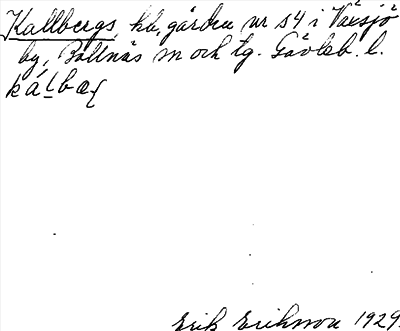 Kallbergs, hb, gården nr 54 i Växsjö
by, Bollnäs sn och tg. Gävleb. l.
Erik Eriksson 1929.